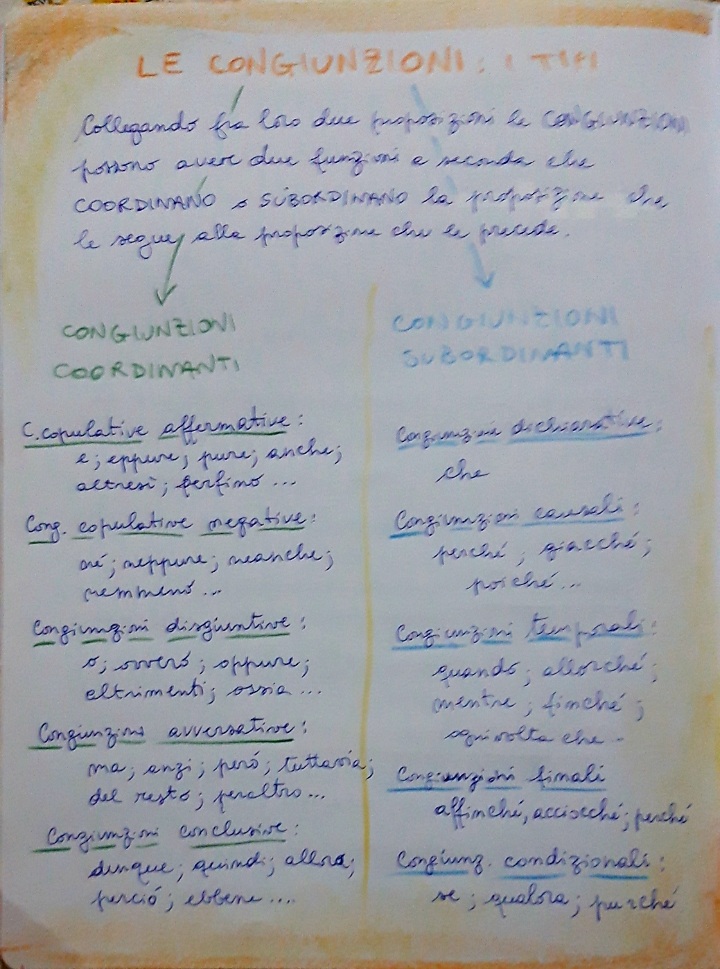 LE CONGIUNZIONI: I TIPI
Collegando fra loro due proposizioni le CONGIUNZIONI
possono avere due funzioni a seconda che
COORDINANO o SUBORDINANO la proposizione che
le segue alla proposizione che le precede.
CONGIUNZIONI
COORDINANTI
C. copulative affermative:
e; eppure; pure; anche;
altresì; perfino ...
Cong. copulative negative:
né; neppure; neanche;
nemmenó ...
Congiunzioni disgiuntive:
o; ovveró; oppure;
altrimenti; ossia ...
Congiunzioni avversative:
ma; anzi; peró; tuttavia;
del resto; peraltro ...
Congiunzioni conclusive:
dunque; quindi; allora;
perció; ebbene ....
CONGIUNZIONI
SUBORDINANTI
Congiunzioni dichiarative:
che
Congiunzioni causali:
perché; giacché;
poiché ...
Congiunzioni temporali:
quando; allorché;
mentre; finché;
ogni volta che ..
Congiunzioni finali
affinché, acciocché; perché
Congiunz. condizionali:
se; qualora; purché